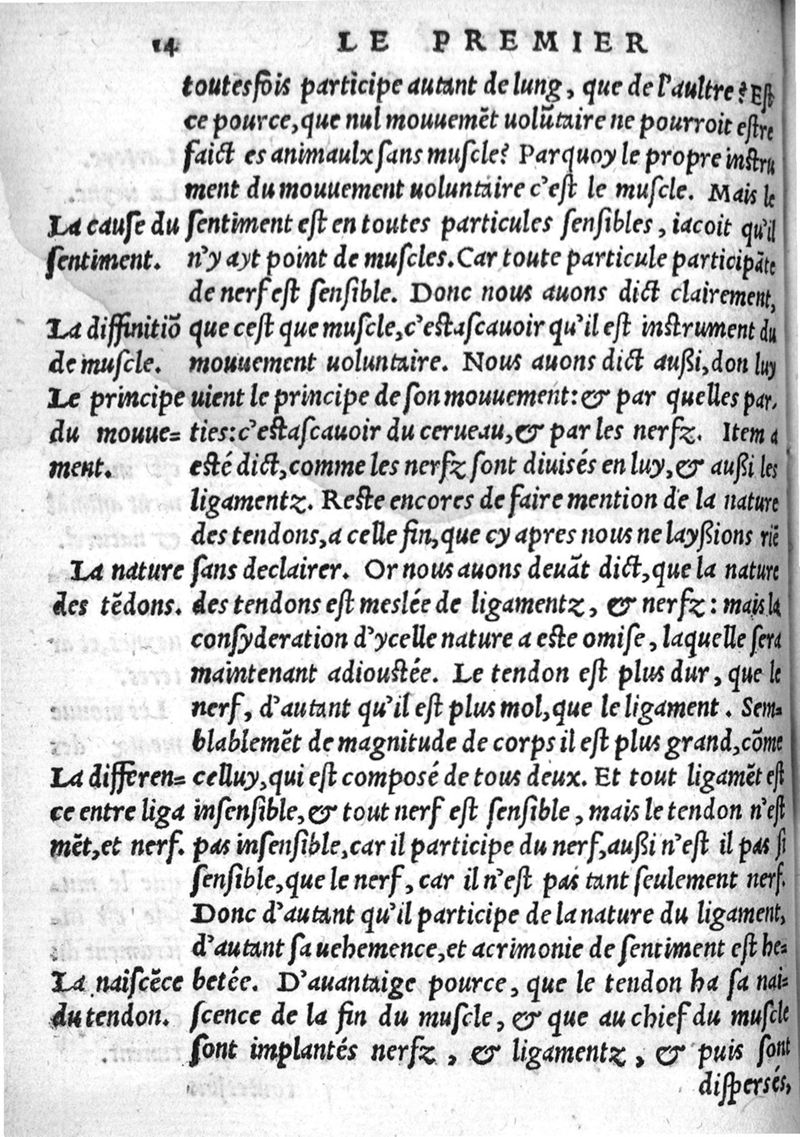 14 LE PREMIER
toutesfois participe autant de lung, que de l'aultre? Est
ce pource, que nul mouuemẽt uolũtaire ne pourroit estre
faict es animaulx sans muscle? Parquoy le propre instru
ment du mouuement uoluntaire c'est le muscle. Mais le
La cause du sentiment est en toutes particules sensibles, iacoit qu'il
sentiment. n'y ayt point de muscles. Car toute particule participãte
de nerf est sensible. Donc nous auons dict clairement,
La diffinitiõ que cest que muscle, c'estascauoir qu'il est instrument du
de muscle. mouuement uoluntaire. Nous auons dict außi, don luy
Le principe uient le principe de son mouuement: & par quelles par,
du mouue= ties: c'estascauoir du cerueau, & par les nerfz. Item a
ment. esté dict, comme les nerfz sont diuisés en luy, & außi les
ligamentz. Reste encores de faire mention de la nature
des tendons, a celle fin, que cy apres nous ne layßions riẽ
La nature sans declairer. Or nous auons deuãt dict, que la nature
des tẽdons. des tendons est meslée de ligamentz, & nerfz: mais la
consyderation d'ycelle nature a este omise, laquelle sera
maintenant adioustée. Le tendon est plus dur, que le
nerf, d'autant qu'il est plus mol, que le ligament. Sem=
blablemẽt de magnitude de corps il est plus grand, cõme
La differen= celluy, qui est composé de tous deux. Et tout ligamẽt est
ce entre liga insensible, & tout nerf est sensible, mais le tendon n'est
mẽt, et nerf. pas insensible, car il participe du nerf, außi n'est il pas si
sensible, que le nerf, car il n'est pas tant seulement nerf.
Donc d'autant qu'il participe de la nature du ligament,
d'autant sa uehemence, et acrimonie de sentiment est he=
La naiscẽce betée. D'auantaige pource, que le tendon ha sa nai=
du tendon. scence de la fin du muscle, & que au chief du muscle
sont implantés nerfz, & ligamentz, & puis sont
dispersés,